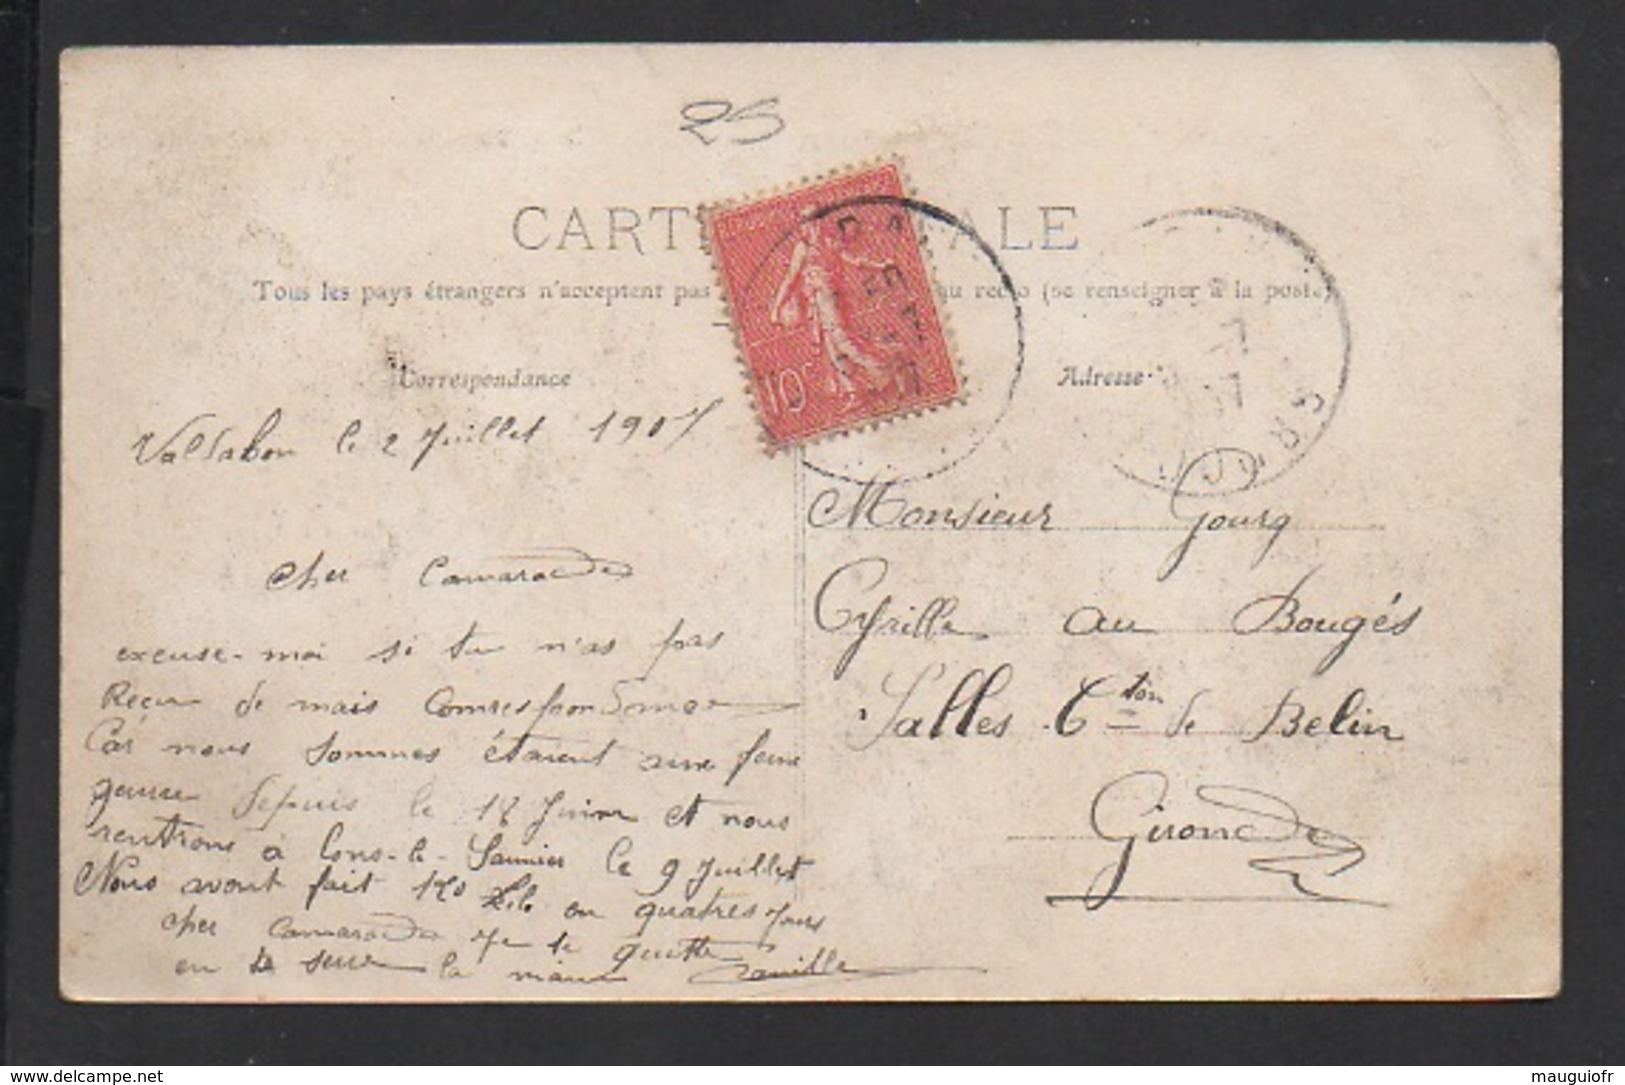 25
CARTE POSTALE
Tous les pays étrangers n'acceptent pas au recto (se renseigner à la poste)
Correspondance
Adresse
10c
Valdahon le 2 Juillet 1907
cher Camarade
excuse-moi si tu n'as pas
Reçu de mais
Car nous sommes étaient une
depuis le 18 Juin et nous
rentrons à Lons-le-Saunier le 9 Juillet
Nous avont fait Kilo en quatres jours
cher Camarade Je te quitte
en te serre la main
Monsieur Gourg
Cyrille au Bougés
Salles Cton de Belin
Gironde
delcampe.net
mauguiofr